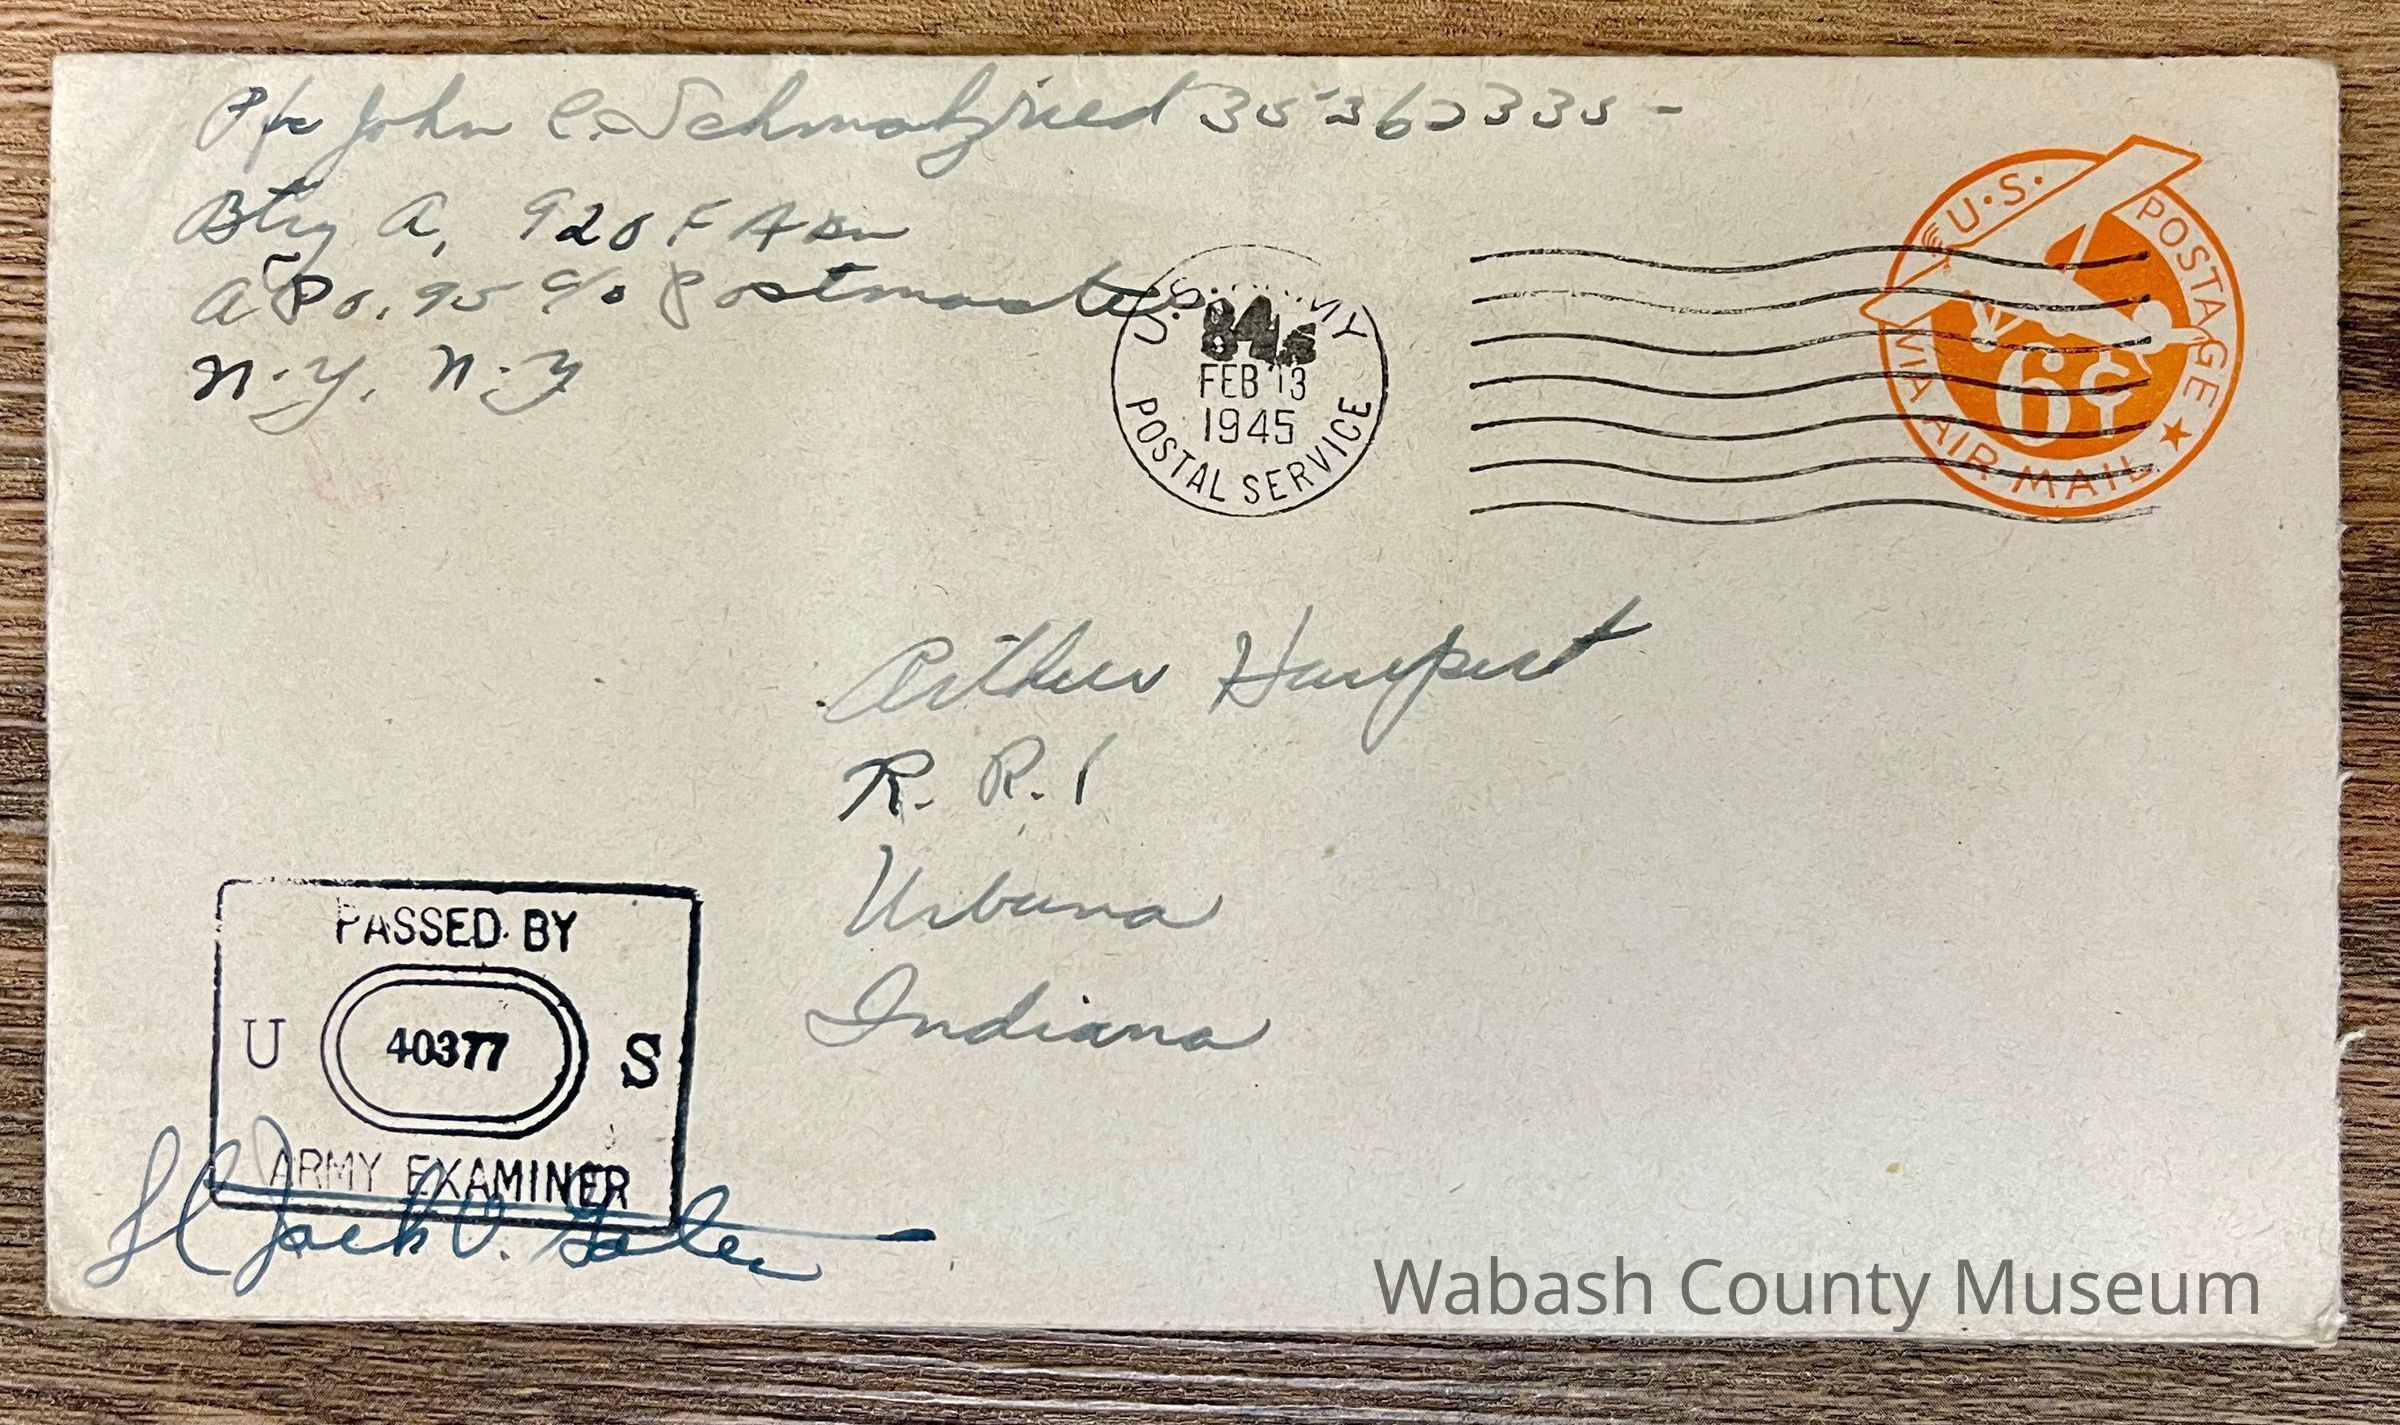 Pfc John C. Schmalzried 35 362335 -
Btry A, 920 F A Bn
A P o. 95 c/o Postmaster
N. Y. N. Y
U.S. ARMY
FEB 13
1945
POSTAL SERVICE
U.S. POSTAGE
6¢
VIA AIR MAIL
Arthur Haupert
R. R. 1
Urbana
Indiana
PASSED BY
U 40377 S
ARMY EXAMINER
Lt Jack V.
Wabash County Museum